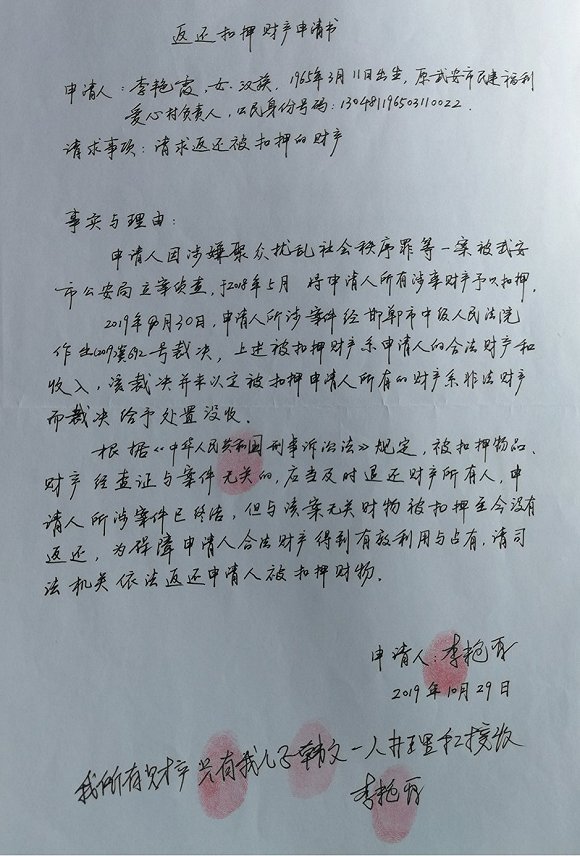 返还扣押财产申请书
申请人：李艳霞，女，汉族，1965年3月11日出生，原武安市民建福利
爱心村负责人，公民身份号码：130481196503110022.
请求事项：请求返还被扣押的财产
事实与理由：
申请人因涉嫌聚众扰乱社会秩序罪等一案被武安
市公安局立案侦查，于2018年5月 将申请人所有涉案财产予以扣押，
2019年 月30日，申请人所涉案件经邯郸市中级人民法院
作出 692号裁决，上述被扣押财产系申请人的合法财产和
收入，该裁决并未认定被扣押申请人所有的财产系非法财产
而裁决给予处置没收。
根据《中华人民共和国刑事诉讼法》规定，被扣押物品、
财产经查证与案件无关的，应当及时退还财产所有人，申
请人所涉案件已终结，但与该案无关财物被扣押至今没有
返还，为保障申请人合法财产得到有效利用与占有，请司
法机关依法返还申请人被扣押财物。
申请人：李艳霞
2019年10月29日
我所有财产只有我儿子韩文一人 管理和接收
李艳霞